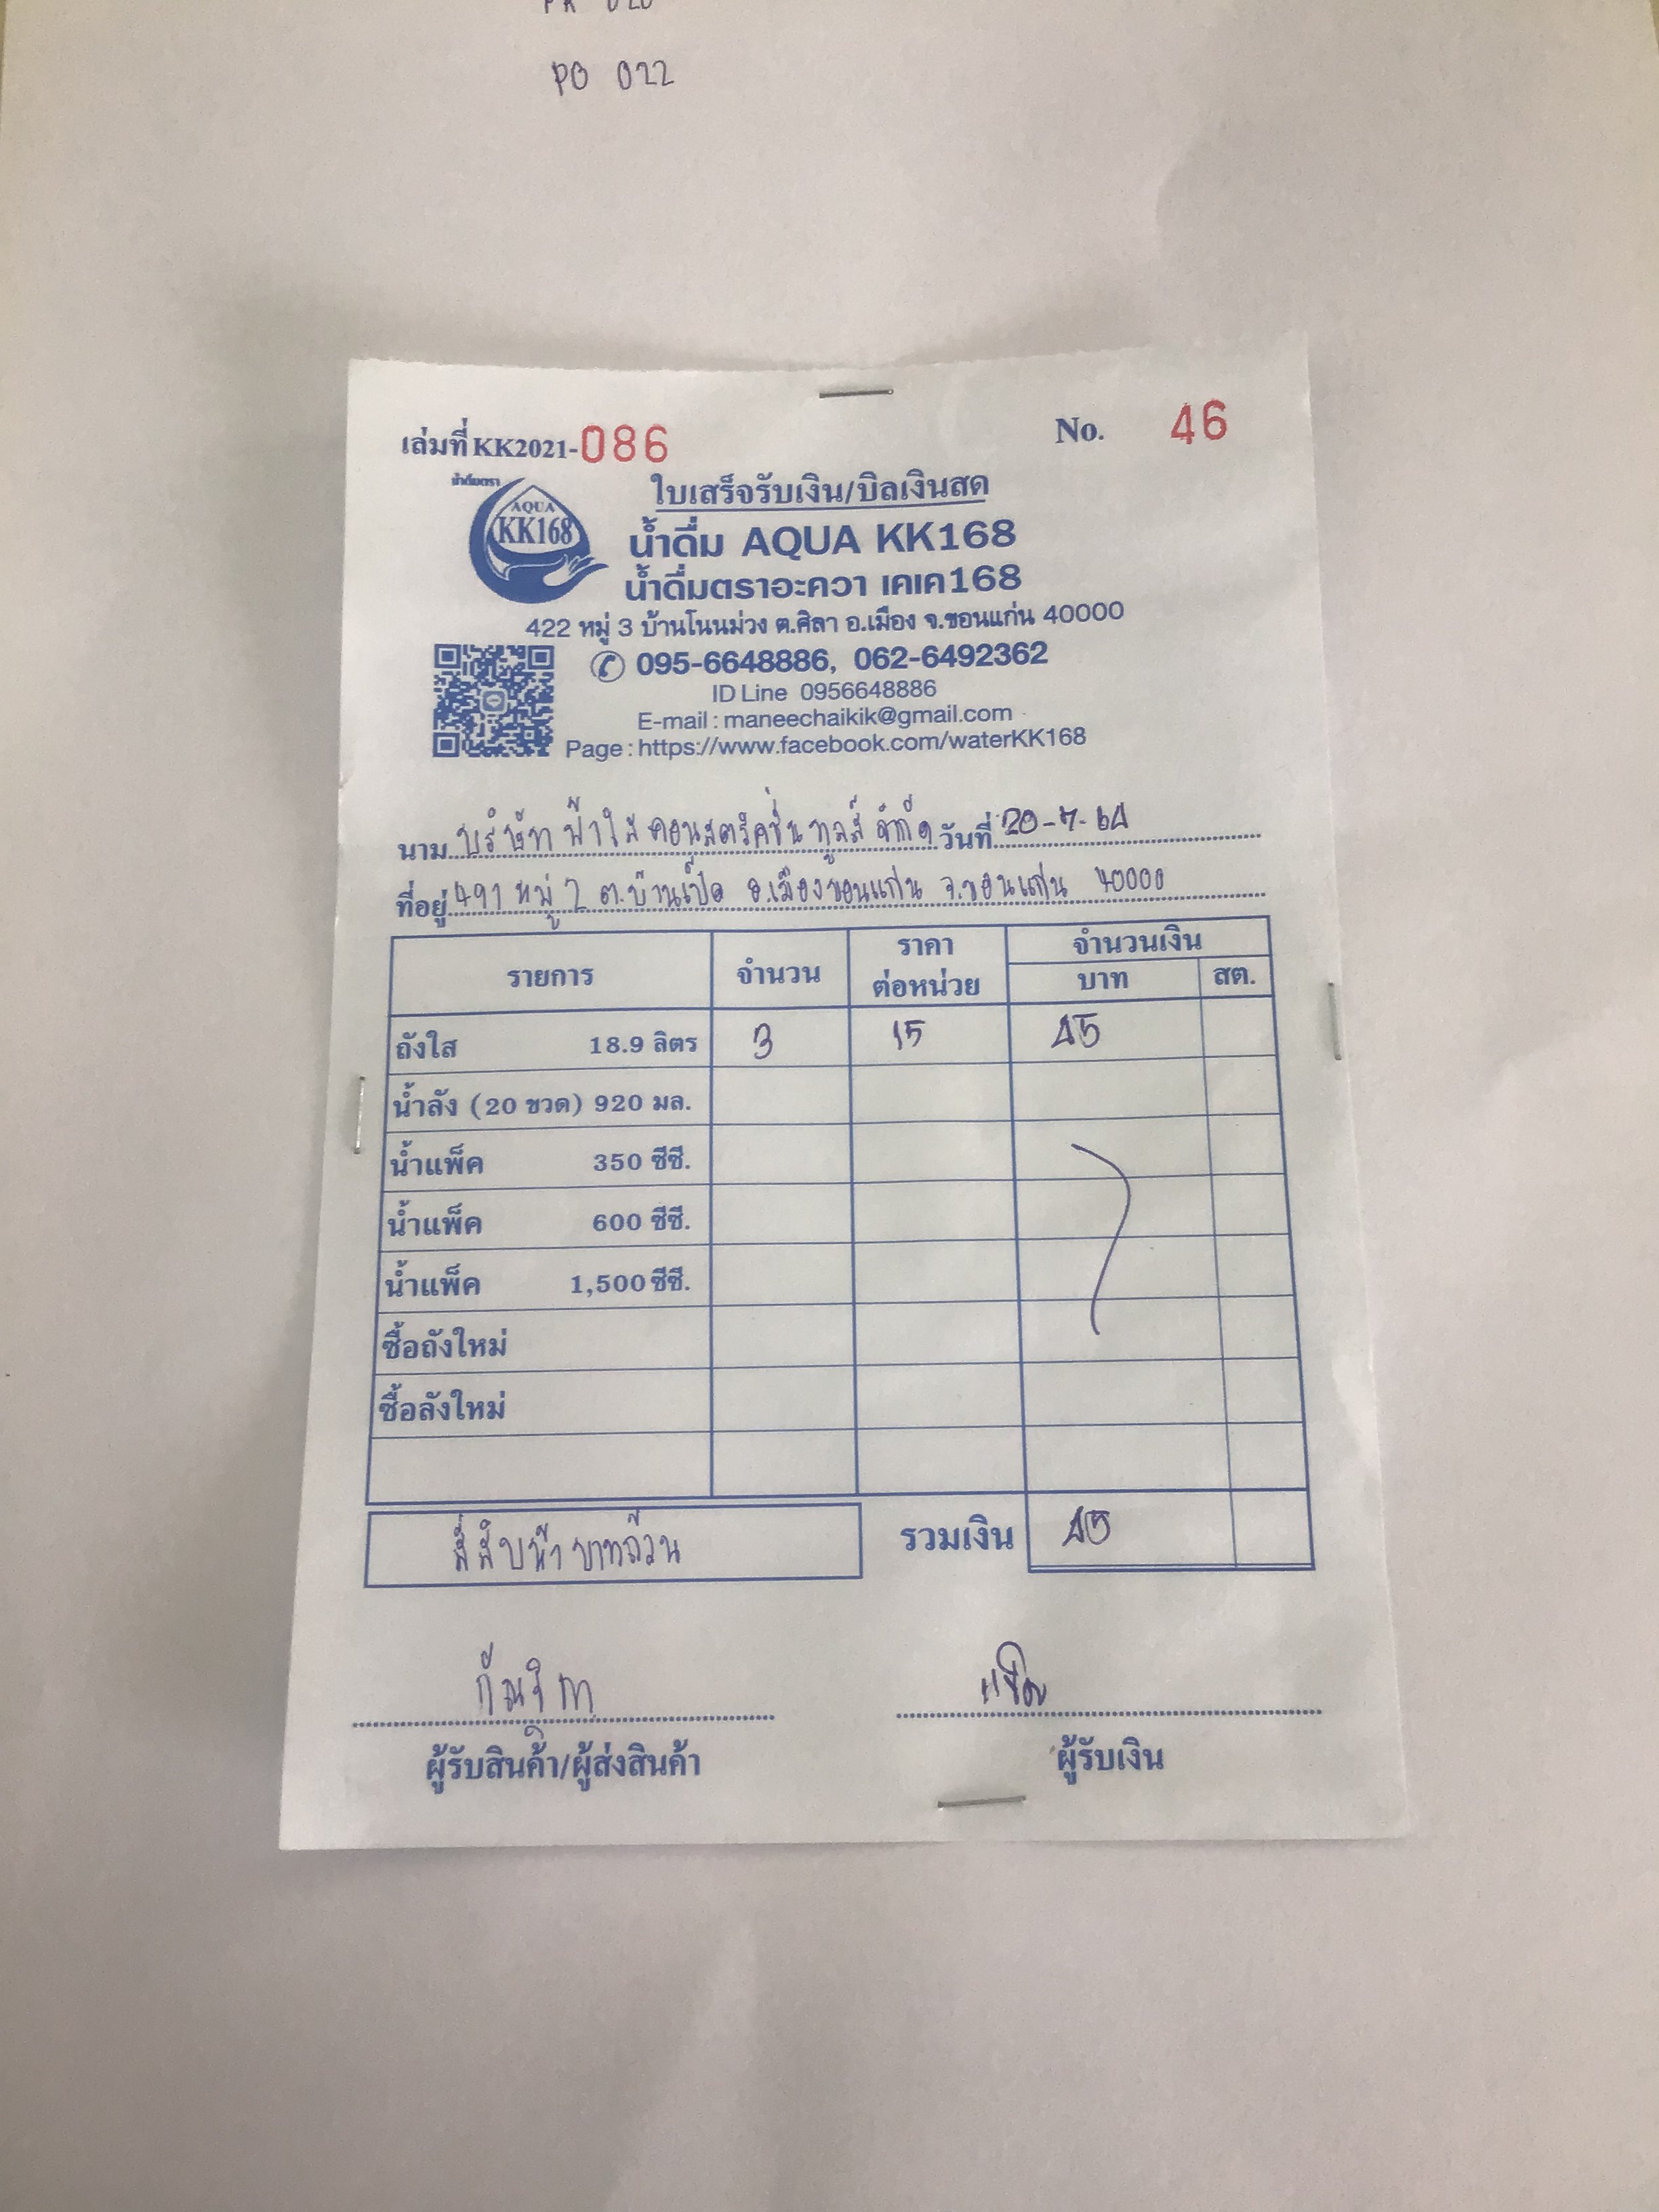 เล่มที่ KK2021-086 No. 46
ใบเสร็จรับเงิน/บิลเงินสด
น้ำดื่มตรา
AQUA
KK168
น้ำดื่ม AQUA KK168
น้ำดื่มตราอะควา เคเค168
422 หมู่ 3 บ้านโนนม่วง ต.ศิลา อ.เมือง จ.ขอนแก่น 40000
095-6648886, 062-6492362
ID Line 0956648886
E-mail : maneechaikik@gmail.com
Page : https://www.facebook.com/waterKK168
นาม บริษัท ฟ้าใส คอนสตรัคชั่น ทูลส์ จำกัด วันที่ 20-7-64
ที่อยู่ 491 หมู่ 2 ต.บ้านเป็ด อ.เมืองขอนแก่น จ.ขอนแก่น 40000
รายการ จำนวน ราคาต่อหน่วย จำนวนเงิน
บาท สต.
ถังใส 18.9 ลิตร 3 15 45
น้ำลัง (20 ขวด) 920 มล.
น้ำแพ็ค 350 ซีซี.
น้ำแพ็ค 600 ซีซี.
น้ำแพ็ค 1,500 ซีซี.
ซื้อถังใหม่
ซื้อลังใหม่
สี่สิบห้าบาทถ้วน รวมเงิน 45
ผู้รับสินค้า/ผู้ส่งสินค้า ผู้รับเงิน
PO 022